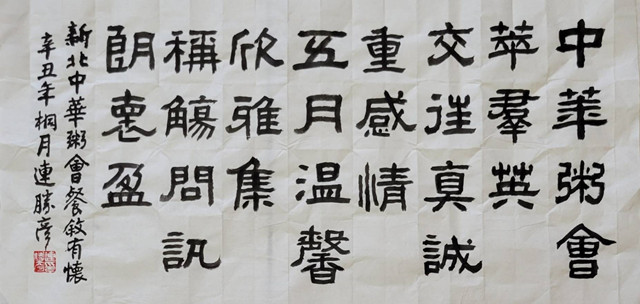 中華粥會
萃羣英
交往真誠
重感情
五月溫馨
欣雅集
稱觴問訊
朗褱盈
新北中華粥會餐敘有懷
辛丑年桐月連勝彥